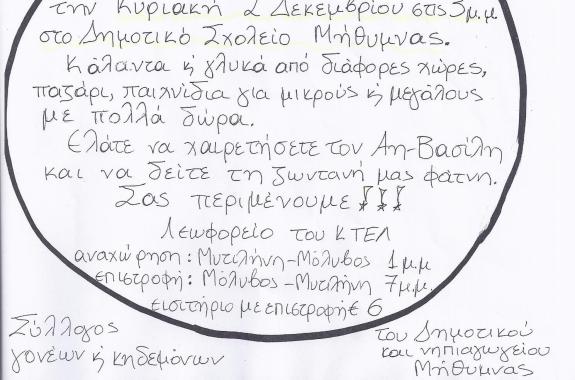 την Κυριακή 2 Δεκεμβρίου στις 3μ.μ
στο Δημοτικό Σχολείο Μήθυμνας.
Κάλαντα ή γλυκά από διάφορες χώρες,
παζάρι, παιχνίδια για μικρούς ή μεγάλους
με πολλά δώρα.
Ελάτε να χαιρετήσετε τον Αη-Βασίλη
και να δείτε τη ζωντανή μας φάτνη.
Σας περιμένουμε!!!
Λεωφορείο του ΚΤΕΛ
αναχώρηση: Μυτιλήνη-Μόλυβος 1μ.μ
επιστροφή: Μόλυβος-Μυτιλήνη 7μ.μ.
εισιτήριο με επιστροφή € 6
Σύλλογος
γονέων ή κηδεμόνων
του Δημοτικού
και νηπιαγωγείου
Μήθυμνας